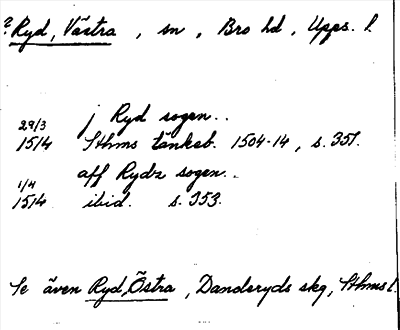 ? Ryd, Västra, sn, Bro hd, Upps. l.
j Ryd sogen..
29/3
1514 Sthms tänkeb. 1504-14, s. 351.
aff Rydz sogen..
1/4
1514 ibid. s. 353.
Se även Ryd, Östra, Danderyds skg, Sthms l.